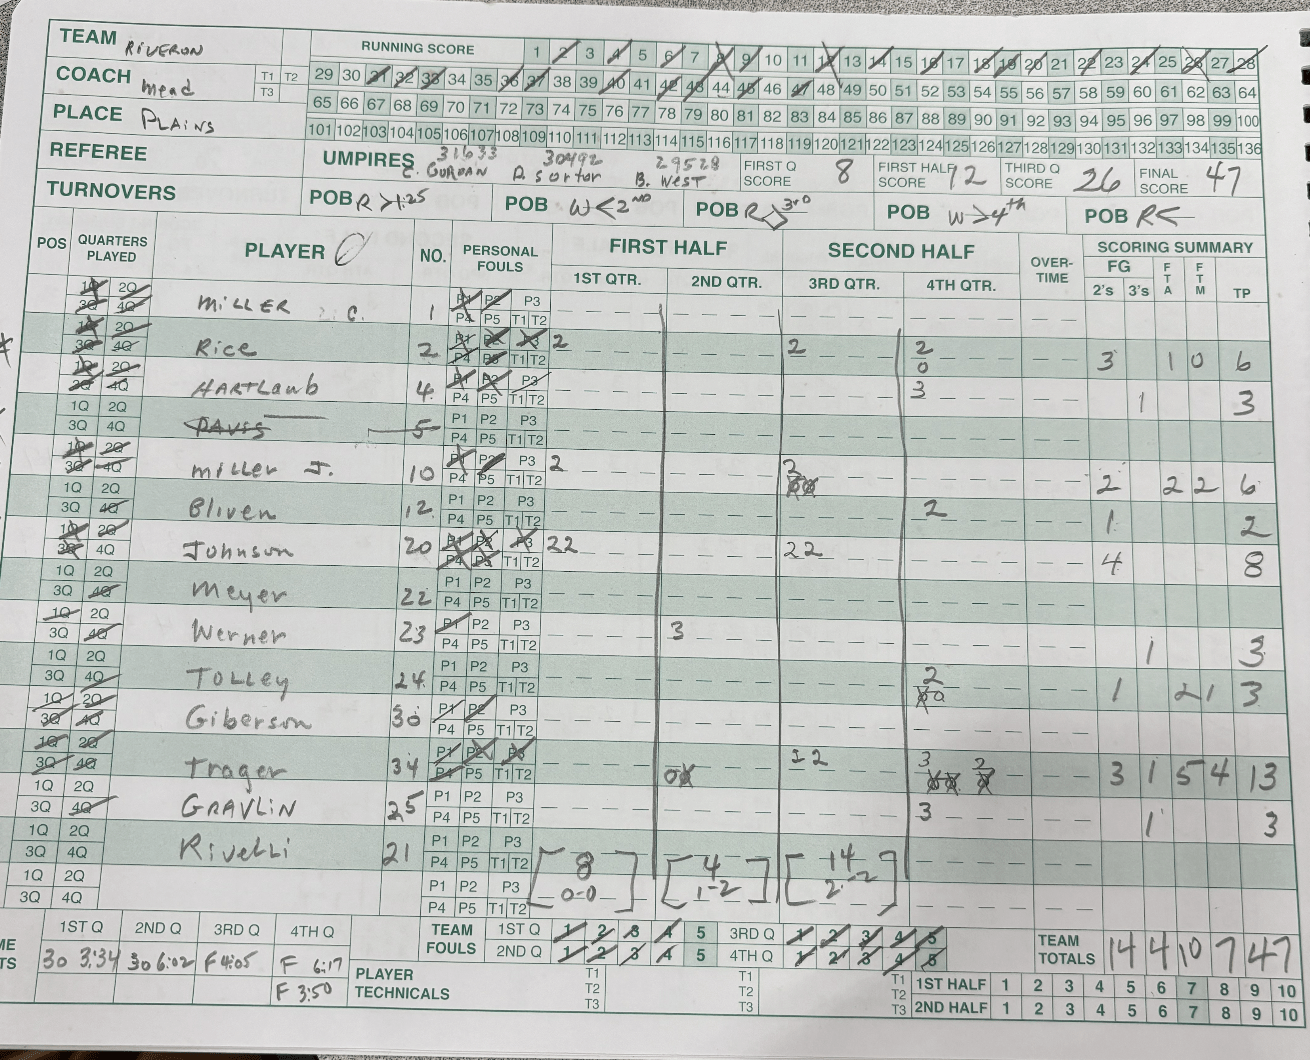 TEAM RIVERON RUNNING SCORE 1 2 3 4 5 6 7 8 9 10 11 12 13 14 15 16 17 18 19 20 21 22 23 24 25 26 27 28
COACH Mead T1 T2 T3 29 30 31 32 33 34 35 36 37 38 39 40 41 42 43 44 45 46 47 48 49 50 51 52 53 54 55 56 57 58 59 60 61 62 63 64
PLACE PLAINS 65 66 67 68 69 70 71 72 73 74 75 76 77 78 79 80 81 82 83 84 85 86 87 88 89 90 91 92 93 94 95 96 97 98 99 100
101 102 103 104 105 106 107 108 109 110 111 112 113 114 115 116 117 118 119 120 121 122 123 124 125 126 127 128 129 130 131 132 133 134 135 136
REFEREE UMPIRES 31633 30492 29528 FIRST Q SCORE 8 FIRST HALF SCORE 12 THIRD Q SCORE 26 FINAL SCORE 47
B. West
TURNOVERS POB R > 1:25 POB W < 2ND POB R 3RD POB W > 4th POB R <
POS QUARTERS PLAYED PLAYER NO. PERSONAL FOULS FIRST HALF SECOND HALF OVER-TIME SCORING SUMMARY
1ST QTR. 2ND QTR. 3RD QTR. 4TH QTR. FG 2's 3's FTA FTM TP
1Q 2Q 3Q 4Q MILLER C. 1 P1 P2 P3 P4 P5 T1 T2
1Q 2Q 3Q 4Q Rice 2 P1 P2 P3 P4 P5 T1 T2 2 2 2 0 3 1 0 6
1Q 2Q 3Q 4Q HARTLAUB 4 P1 P2 P3 P4 P5 T1 T2 3 1 3
1Q 2Q 3Q 4Q DAVIS 5 P1 P2 P3 P4 P5 T1 T2
1Q 2Q 3Q 4Q Miller J. 10 P1 P2 P3 P4 P5 T1 T2 2 2 2 2 2 6
1Q 2Q 3Q 4Q Bliven 12 P1 P2 P3 P4 P5 T1 T2 2 1 2
1Q 2Q 3Q 4Q Johnson 20 P1 P2 P3 P4 P5 T1 T2 22 22 4 8
1Q 2Q 3Q 4Q Meyer 22 P1 P2 P3 P4 P5 T1 T2
1Q 2Q 3Q 4Q Werner 23 P1 P2 P3 P4 P5 T1 T2 3 1 3
1Q 2Q 3Q 4Q TOLLEY 24 P1 P2 P3 P4 P5 T1 T2 2 1 2 1 3
1Q 2Q 3Q 4Q Giberson 30 P1 P2 P3 P4 P5 T1 T2
1Q 2Q 3Q 4Q Trager 34 P1 P2 P3 P4 P5 T1 T2 2 2 3 2 3 1 5 4 13
1Q 2Q 3Q 4Q GRAVLIN 25 P1 P2 P3 P4 P5 T1 T2 3 1 3
1Q 2Q 3Q 4Q Rivelli 21 P1 P2 P3 P4 P5 T1 T2 8 4 14
1Q 2Q 3Q 4Q P1 P2 P3 P4 P5 T1 T2 0-0 1-2 2-2
1ST Q 2ND Q 3RD Q 4TH Q TEAM FOULS 1ST Q 1 2 3 4 5 3RD Q 1 2 3 4 5 TEAM TOTALS 14 4 10 7 47
30 3:34 30 6:02 F 4:05 F 6:17 2ND Q 1 2 3 4 5 4TH Q 1 2 3 4 5
F 3:50 PLAYER TECHNICALS T1 T2 T3 T1 T2 T3 T1 T2 T3 1ST HALF 1 2 3 4 5 6 7 8 9 10
2ND HALF 1 2 3 4 5 6 7 8 9 10